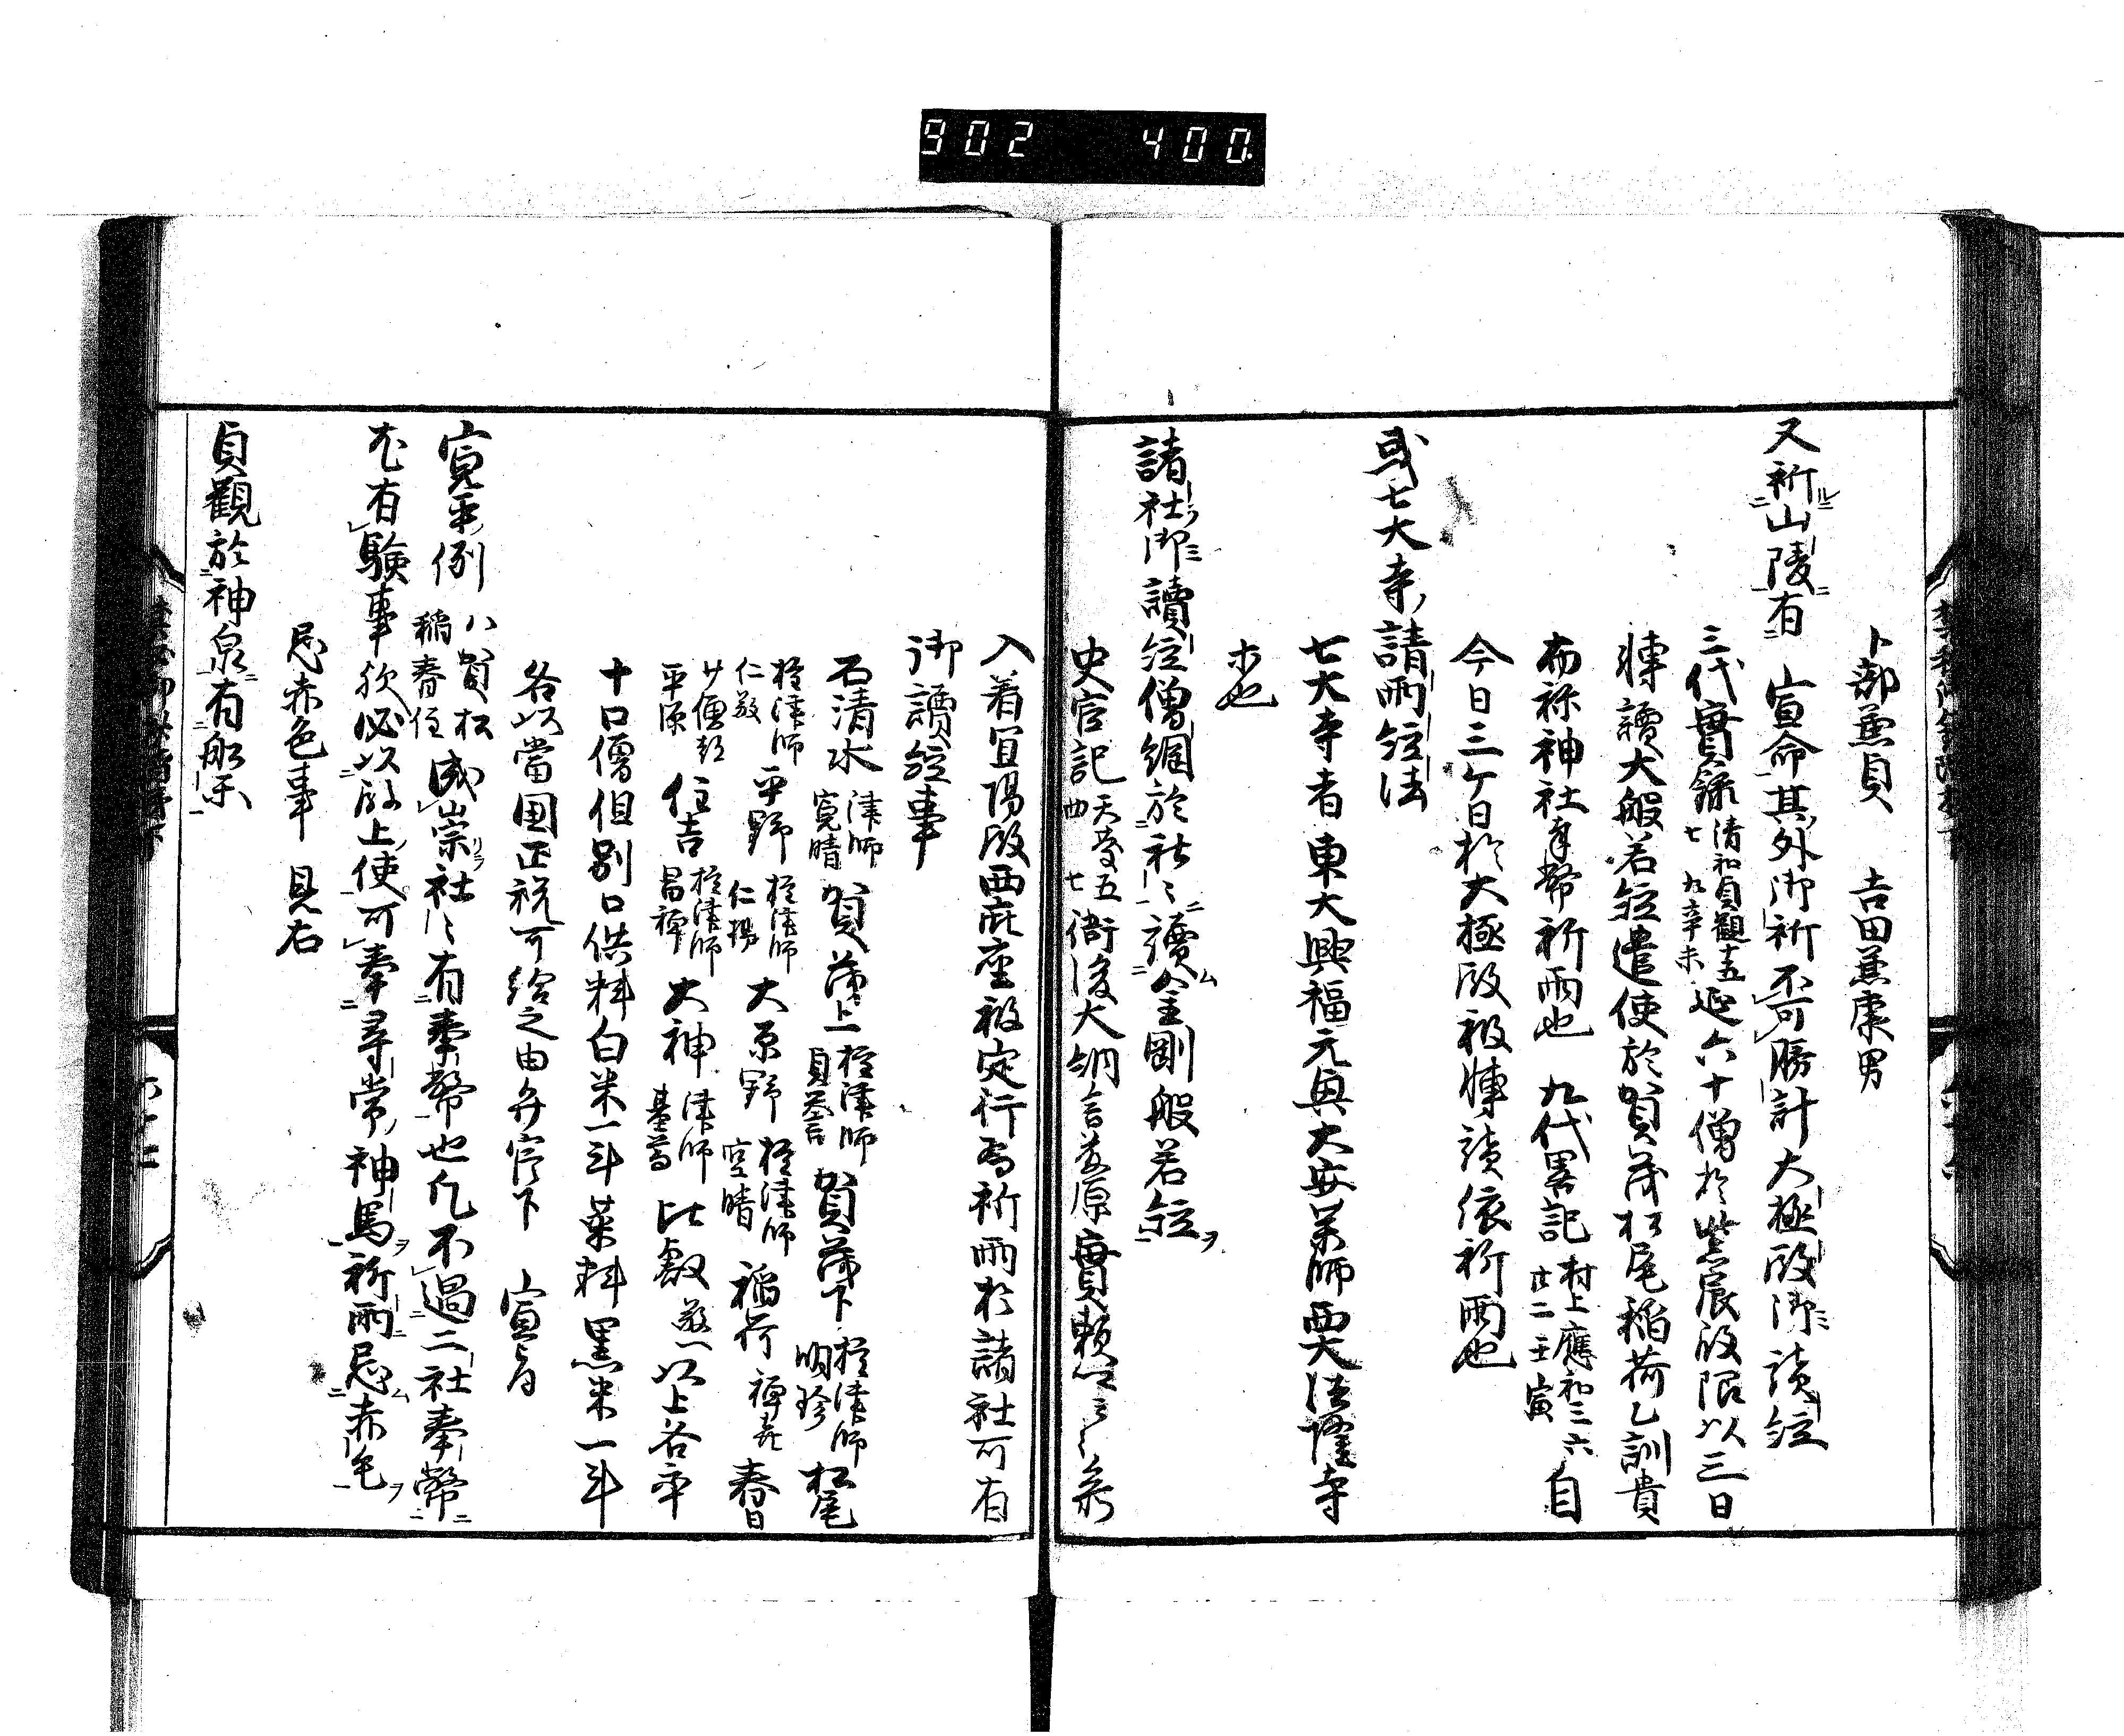 902 400
卜部兼貞 吉田兼康男
又祈山陵有 宣命其外御祈不可勝計大極殿御読経
三代實録清和貞觀十五七九辛未延六十僧於紫宸殿限以三日
轉讀大般若經遣使於賀茂松尾稲荷乙訓貴
布祢神社奉幣祈雨也 九代畧記村上應和三六廿二壬寅自
今日三ケ日於大極殿被轉読依祈雨也
或七大寺請雨経法
七大寺者東大興福元興大安薬師西大法隆寺
ホ也
諸社御讀経僧綱於社〻讀金剛般若経
史官記天慶五四七衙後大納言藤原實頼
入着宜陽殿西庇座被定行為祈雨於諸社可有
御讀経事
石清水律師寛晴賀茂上権律師貞誉賀茂下権律師明珍松尾
権律師仁敎平野権律師大原野権律師空晴稲荷禅喜春日
少僧都平源住吉権律師昌禅大神律師基蔵比叡以上各率
十口僧但別口供料白米一斗菜料黒米一斗
各以當国正税可給之由弁官下 宣旨
寛平例八賀松稲春住或崇社〻有奉幣也凡不過二社奉幣
尤有驗事欤必以殿上使可奉尋常神馬祈雨忌赤毛
忌赤色事 見右
貞觀於神泉有船樂